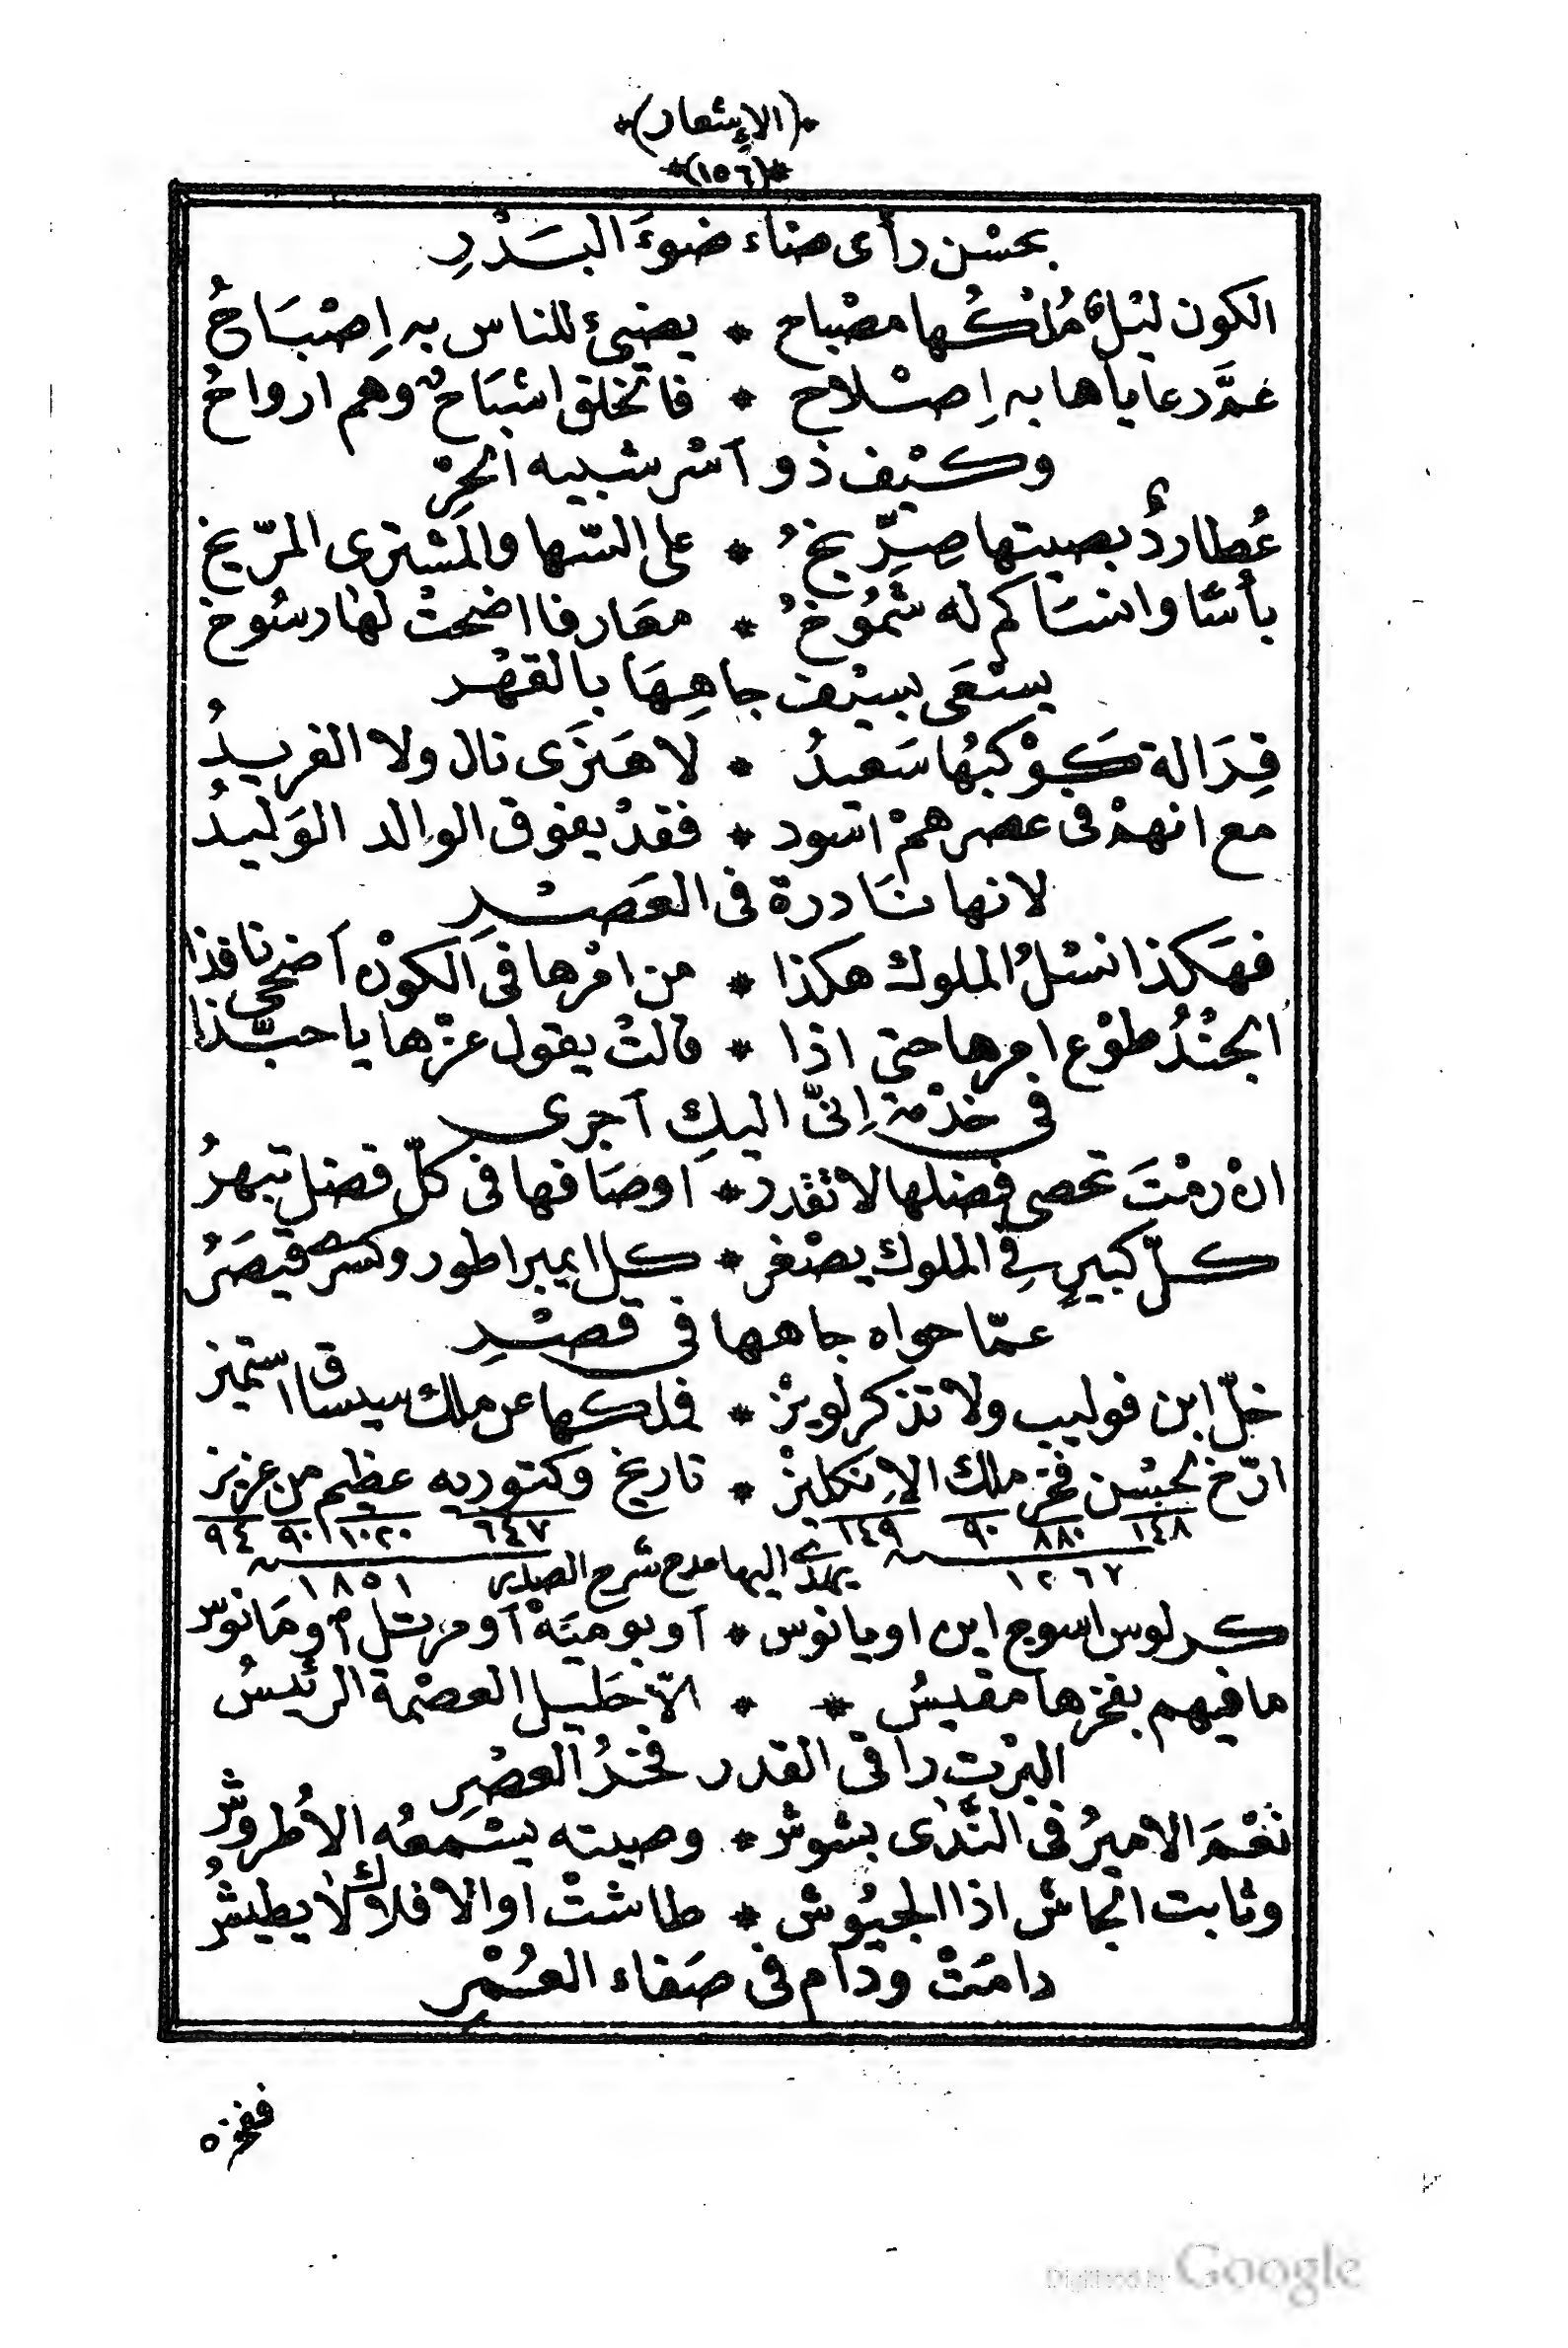 *(الإشعار)*
*(١٥٦)*
بحسْن رأى ضاء ضوءَ البَدْرِ
الكون ليْلٌ مُلْكُها مصْباح * يضئ للناس به اِصْبَاحُ
عمَّ رعاياها به اِصْلاح * فالخلق اشبَاحٌ وهم ارواحُ
وكيْف ذو اَسْر شبيه الحرِّ
عُطاردٌ بصيتها صِرِّيخُ * على السّها والمشترى المرّيخ
بأسًا وانسَاكم له شمُوخُ * معَارفا اضحتْ لهَا رسُوخ
يسْعَى بسيْف جاهِهَا بالقهْر
فِرَالة كوْكبُها سَعيدُ * لا هَنرَى نال ولا الفريدُ
مع انهمْ فى عصرهمْ اسود * فقدْ يفوق الوالد الوَليدُ
لانها نَادرة فى العَصْرِ
فهَكذا نسْلُ الملوك هكذا * من امْرها فى الكوْن اَضحى نافذا
الجنْدُ طوْع امرها حتى اذا * قالتْ يقول عزّها يا حبّذا
فى خدْمة اِنّى اليكِ اَجرى
انْ رمْتَ تحصى فضلها لا تقدر * اوصَافها فى كلّ فضل تبهرُ
كلّ كبيرٍ فِى الملوك يصْغر * كل ايمبراطور وكسرى قيصَرُ
عمّا حواه جاهها فى قصْرِ
خلّ ابن فوليب ولا تذكر لويز * فملكها عن ملك سيساق استميز
ارّخ لحسْن فخر ملك الإنكليز * تاريخ وكتوريه عظيم من عزيز
١٤٨ ٨٨٠ ٩٠ ١٤٩ ٦٤٧ ١٠٢٠ ٩٠ ٩٤
١٢٦٧ يهدى اليها مدح شرح الصدر ١٨٥١
كرلوس اسوج ابن اويانوس * اَو بوميَهْ اَو مرتل اَو مَانوس
ما فيهم بفخرها مقيسُ * * الاّ خليل العصْمة الرئيسُ
البرْت راقى القدر فخرُ العصْرِ
نعْمَ الاميرُ فى النّدى بشوش * وصيته يسْمعُه الأطروشُ
وثابت الجاش اذا الجيُوش * طاشتْ او الافلاك لا يطيشُ
دامتْ ودام فى صَفاء العُمْرِ
ففخره
Digitized by Google